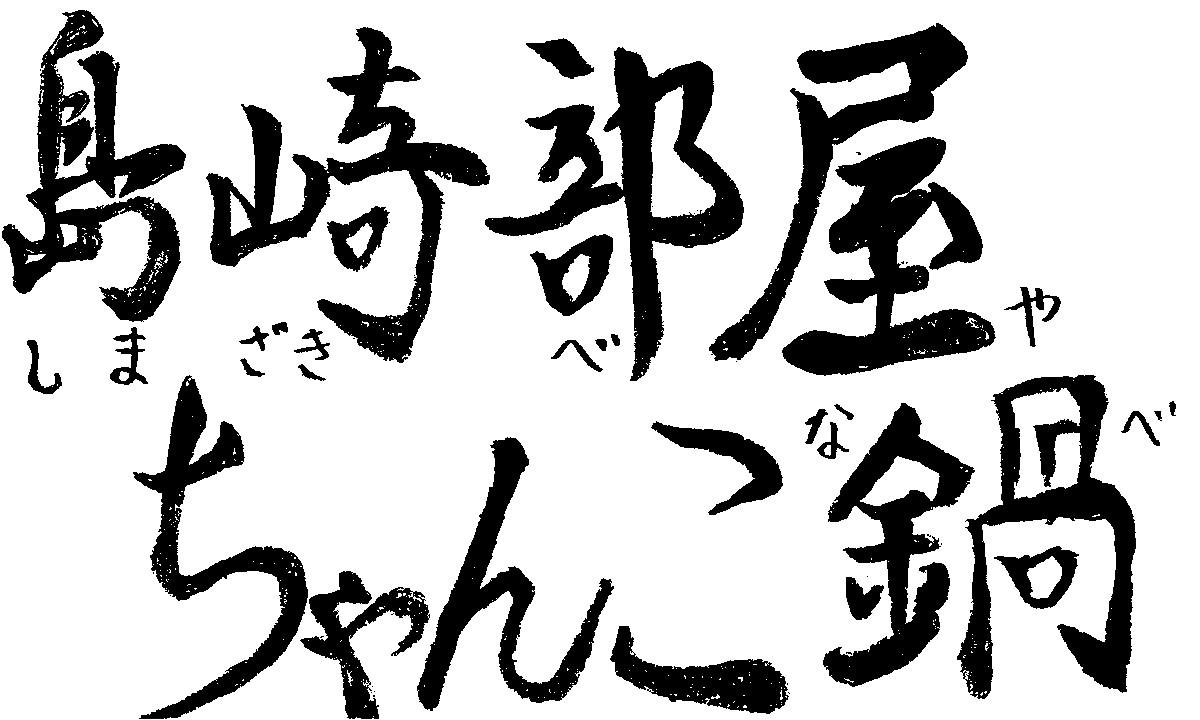 島崎部屋
しまざきべや
ちゃんこ鍋
なべ